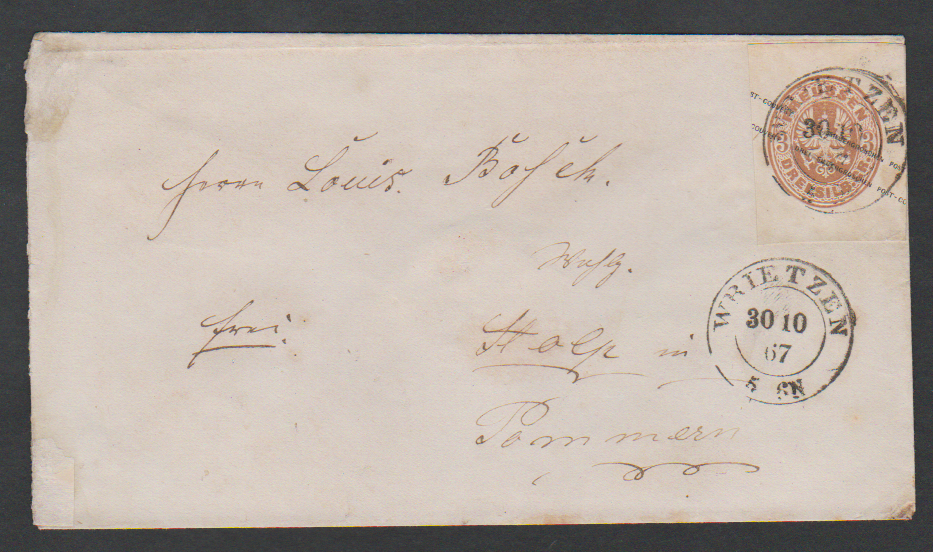 WRIETZEN
30 10
PREUSSEN
DREI SILB.
POST-COUVERT
Herrn Louis. Bosch.
Wohlg.
frei.
Stolp in
Pommern
WRIETZEN
30 10
67
5 6N